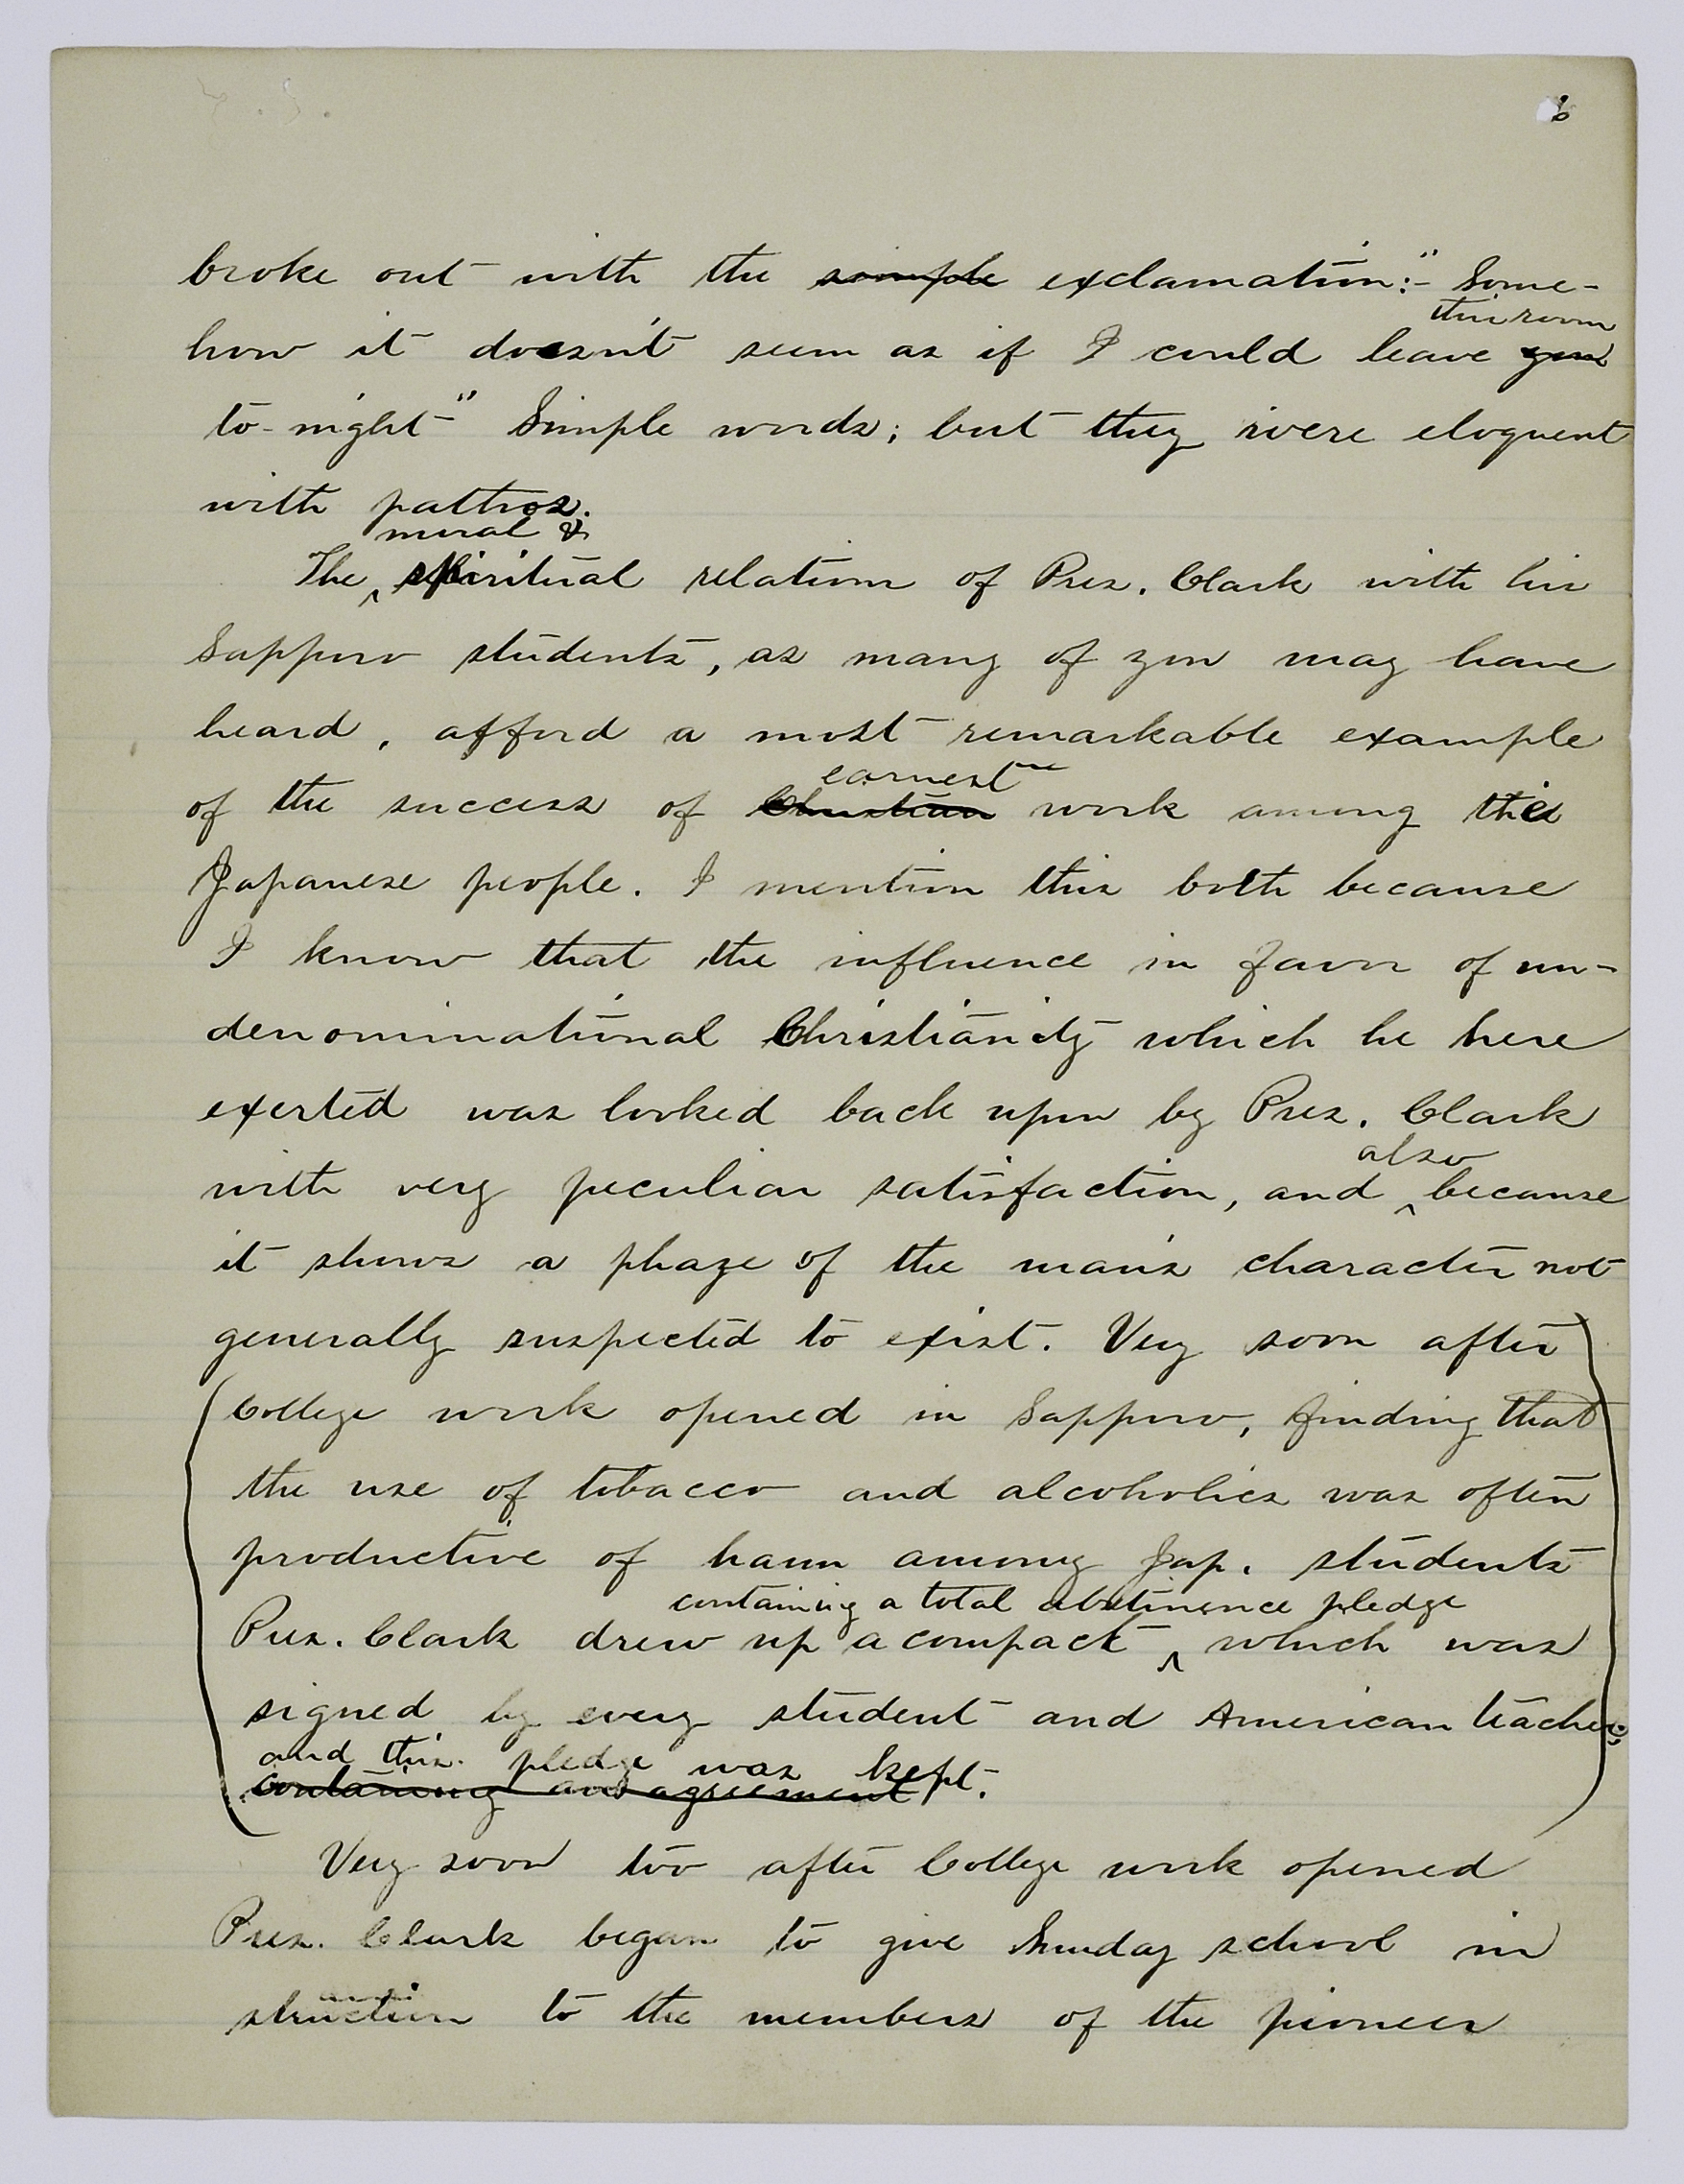 6
broke out with the simple exclamation:- "Some-
this room
how it doesn't seem as if I could leave you
to-night" Simple words; but they were eloquent
with pathos.
moral &
The spiritual relation of Prez. Clark with his
Sapporo students, as many of you may have
heard, afford a most remarkable example
earnest
of the success of Christian work among the
Japanese people. I mention this both because
I know that the influence in favor of un-
denominational Christianity which he here
exerted was looked back upon by Prez. Clark
also
with very peculiar satisfaction, and ^ because
it shows a phaze of the man's character not
generally suspected to exist. Very soon after
(College work opened in Sapporo, finding that
the use of tobacco and alcoholics was often
productive of harm among Jap. students
containing a total abstinence pledge
Prez. Clark drew up a compact ^ which was
signed by every student and American teacher;
and this pledge was kept.
containing an agreement
)
Very soon too after College work opened
Prez. Clark began to give Sunday school in
struction to the members of the pioneer